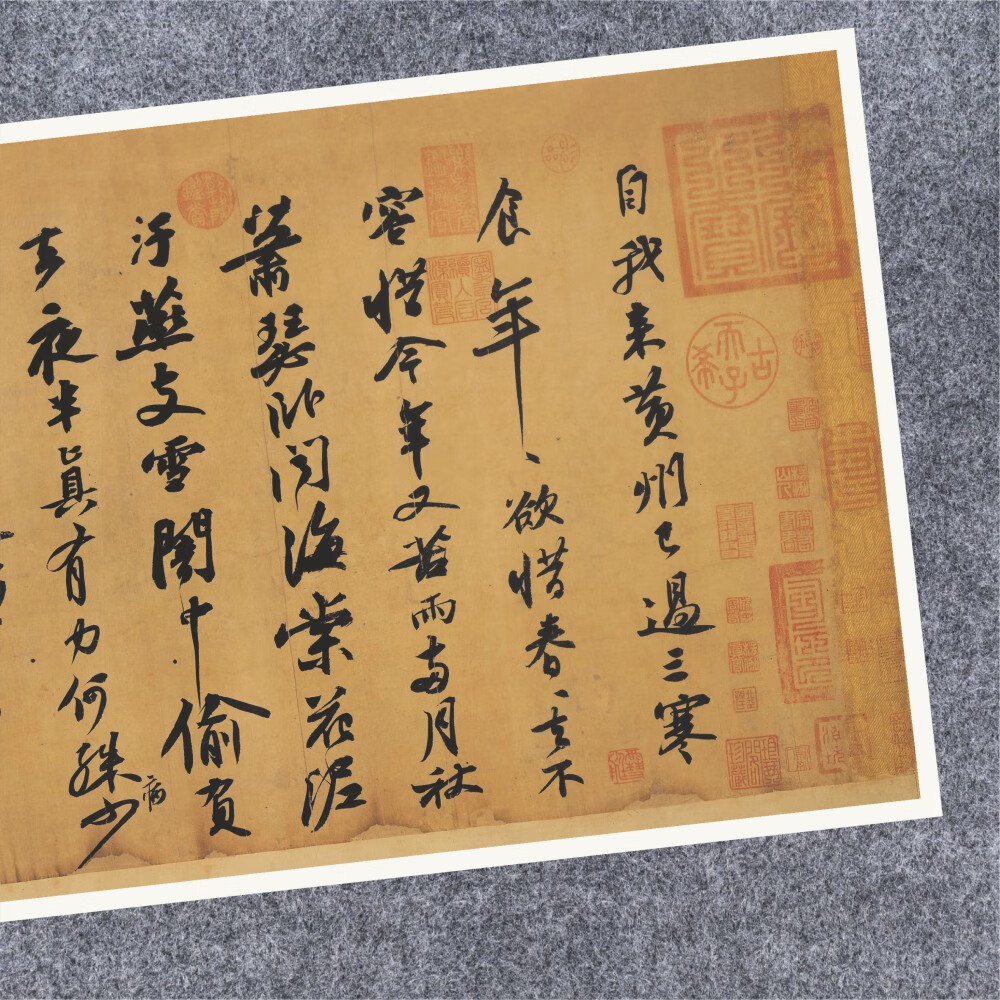 自我来黄州已過三寒
食年、欲惜春、去不
容惜今年又苦雨兩月秋
蕭瑟卧聞海棠花泥
汙燕支雪闇中偷負
去夜半眞有力何殊病少
古希天子